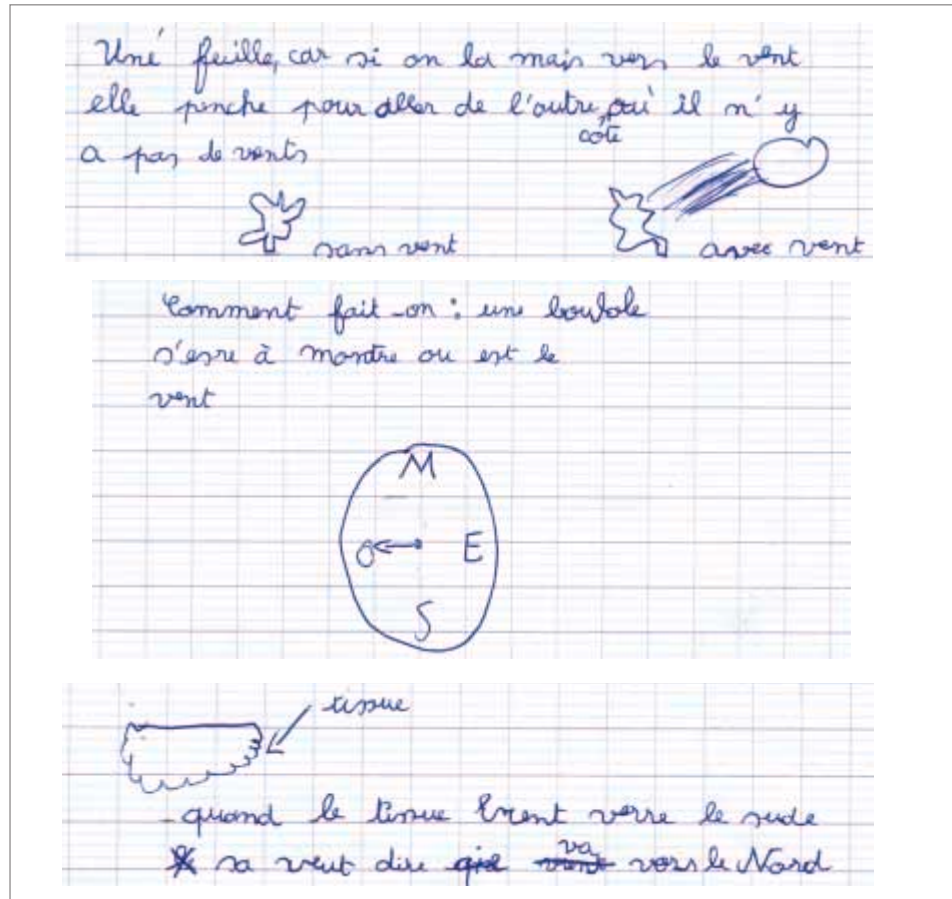 Une feuille, car si on la mais vers le vent
elle penche pour aller de l'autre côté, où il n'y
a pas de vents
sans vent
avec vent
Comment fait-on : une boubole
s'esre à montre ou est le
vent
N
O
E
S
tissue
- quand le tissue vient verre le sude
sa veut dire va vers le Nord